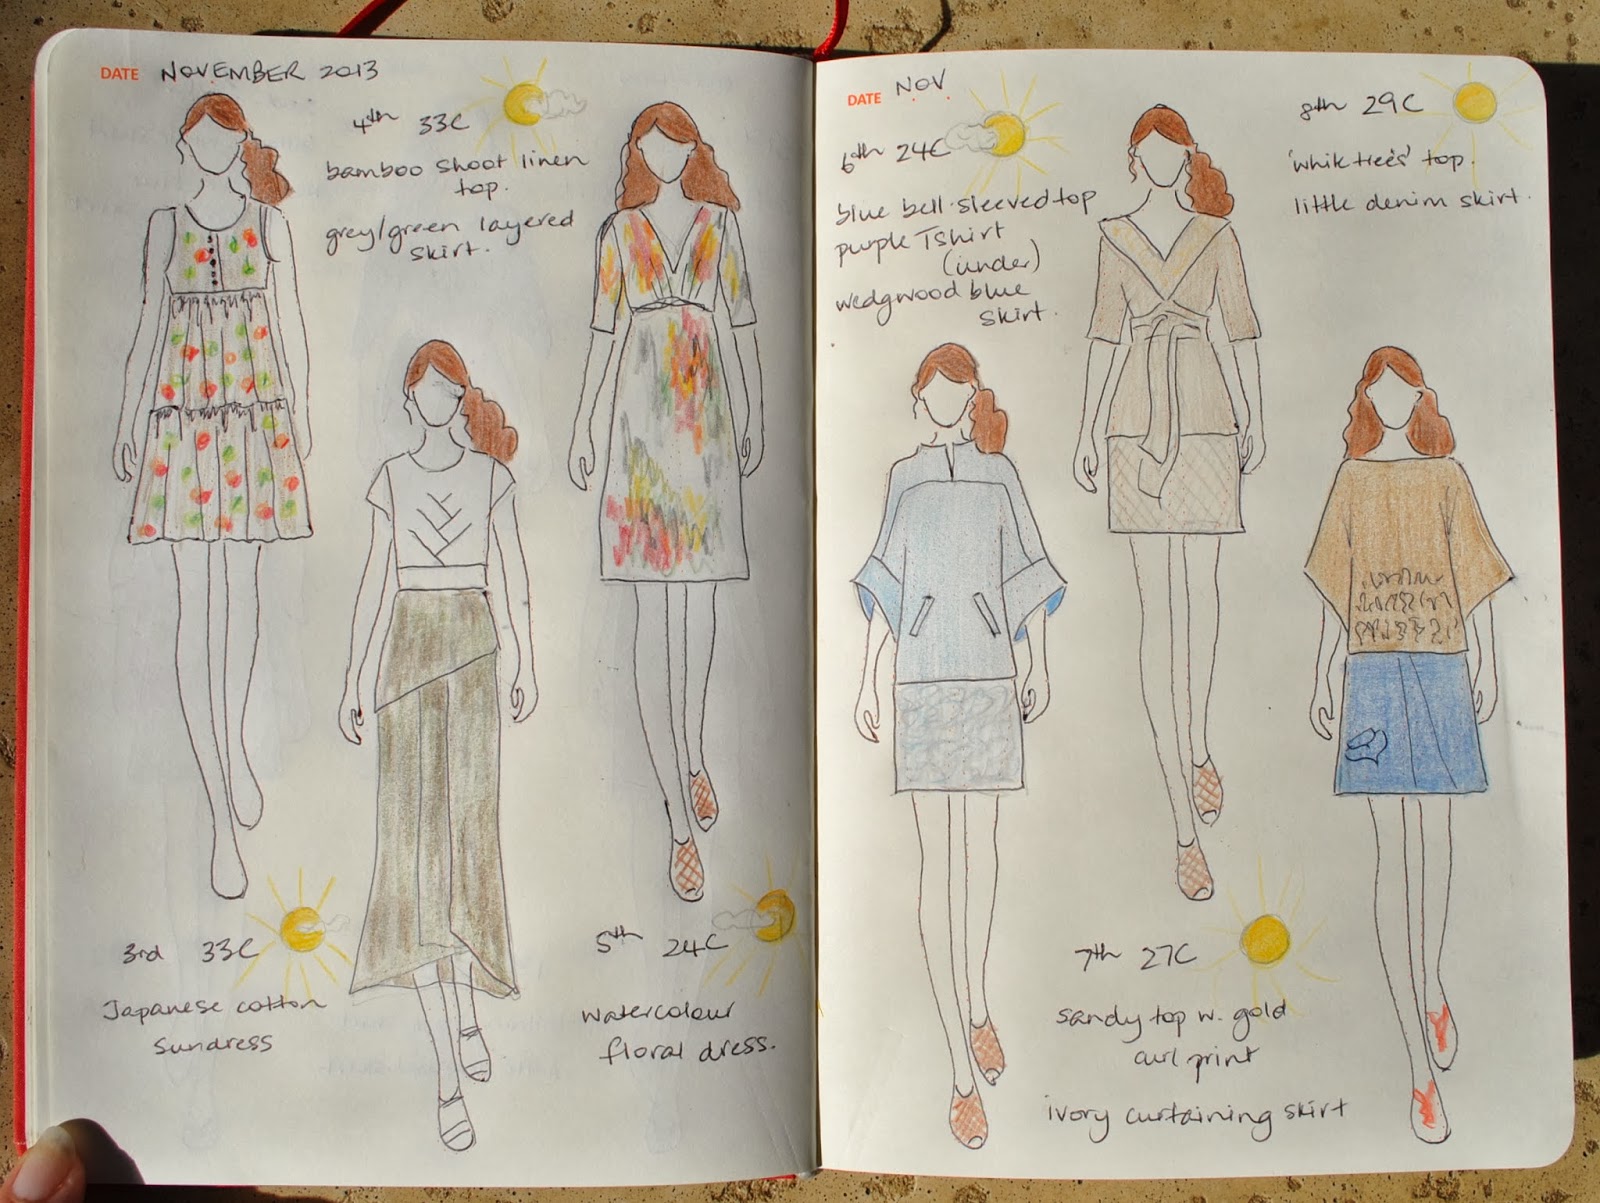 DATE NOVEMBER 2013
4th 33C
bamboo shoot linen
top.
grey/green layered
skirt.
3rd 33C
Japanese cotton
sundress
5th 24C
watercolour
floral dress.
DATE NOV
6th 24C
blue bell-sleeved top
purple Tshirt
(under)
wedgwood blue
skirt.
8th 29C
top.
little denim skirt.
7th 27C
sandy top w. gold
curl print
ivory curtaining skirt